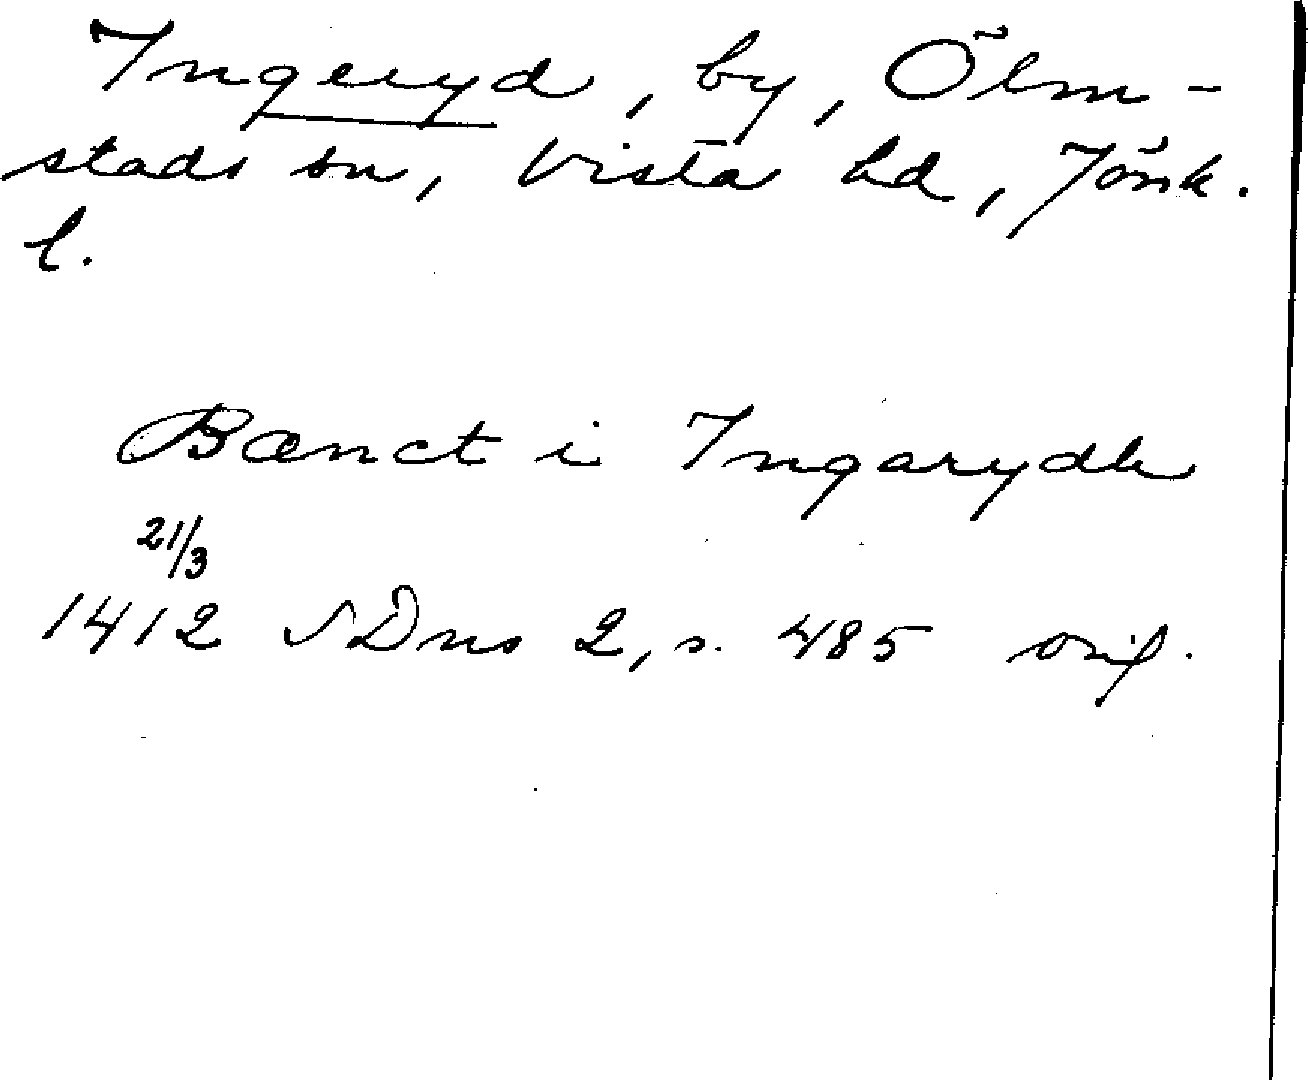 Ingeryd, by, Ölm-
stads sn, Vista hd, Jönk.
l.
Bænct i Ingarydh
21/3
1412 SDns 2, s. 485 orig.